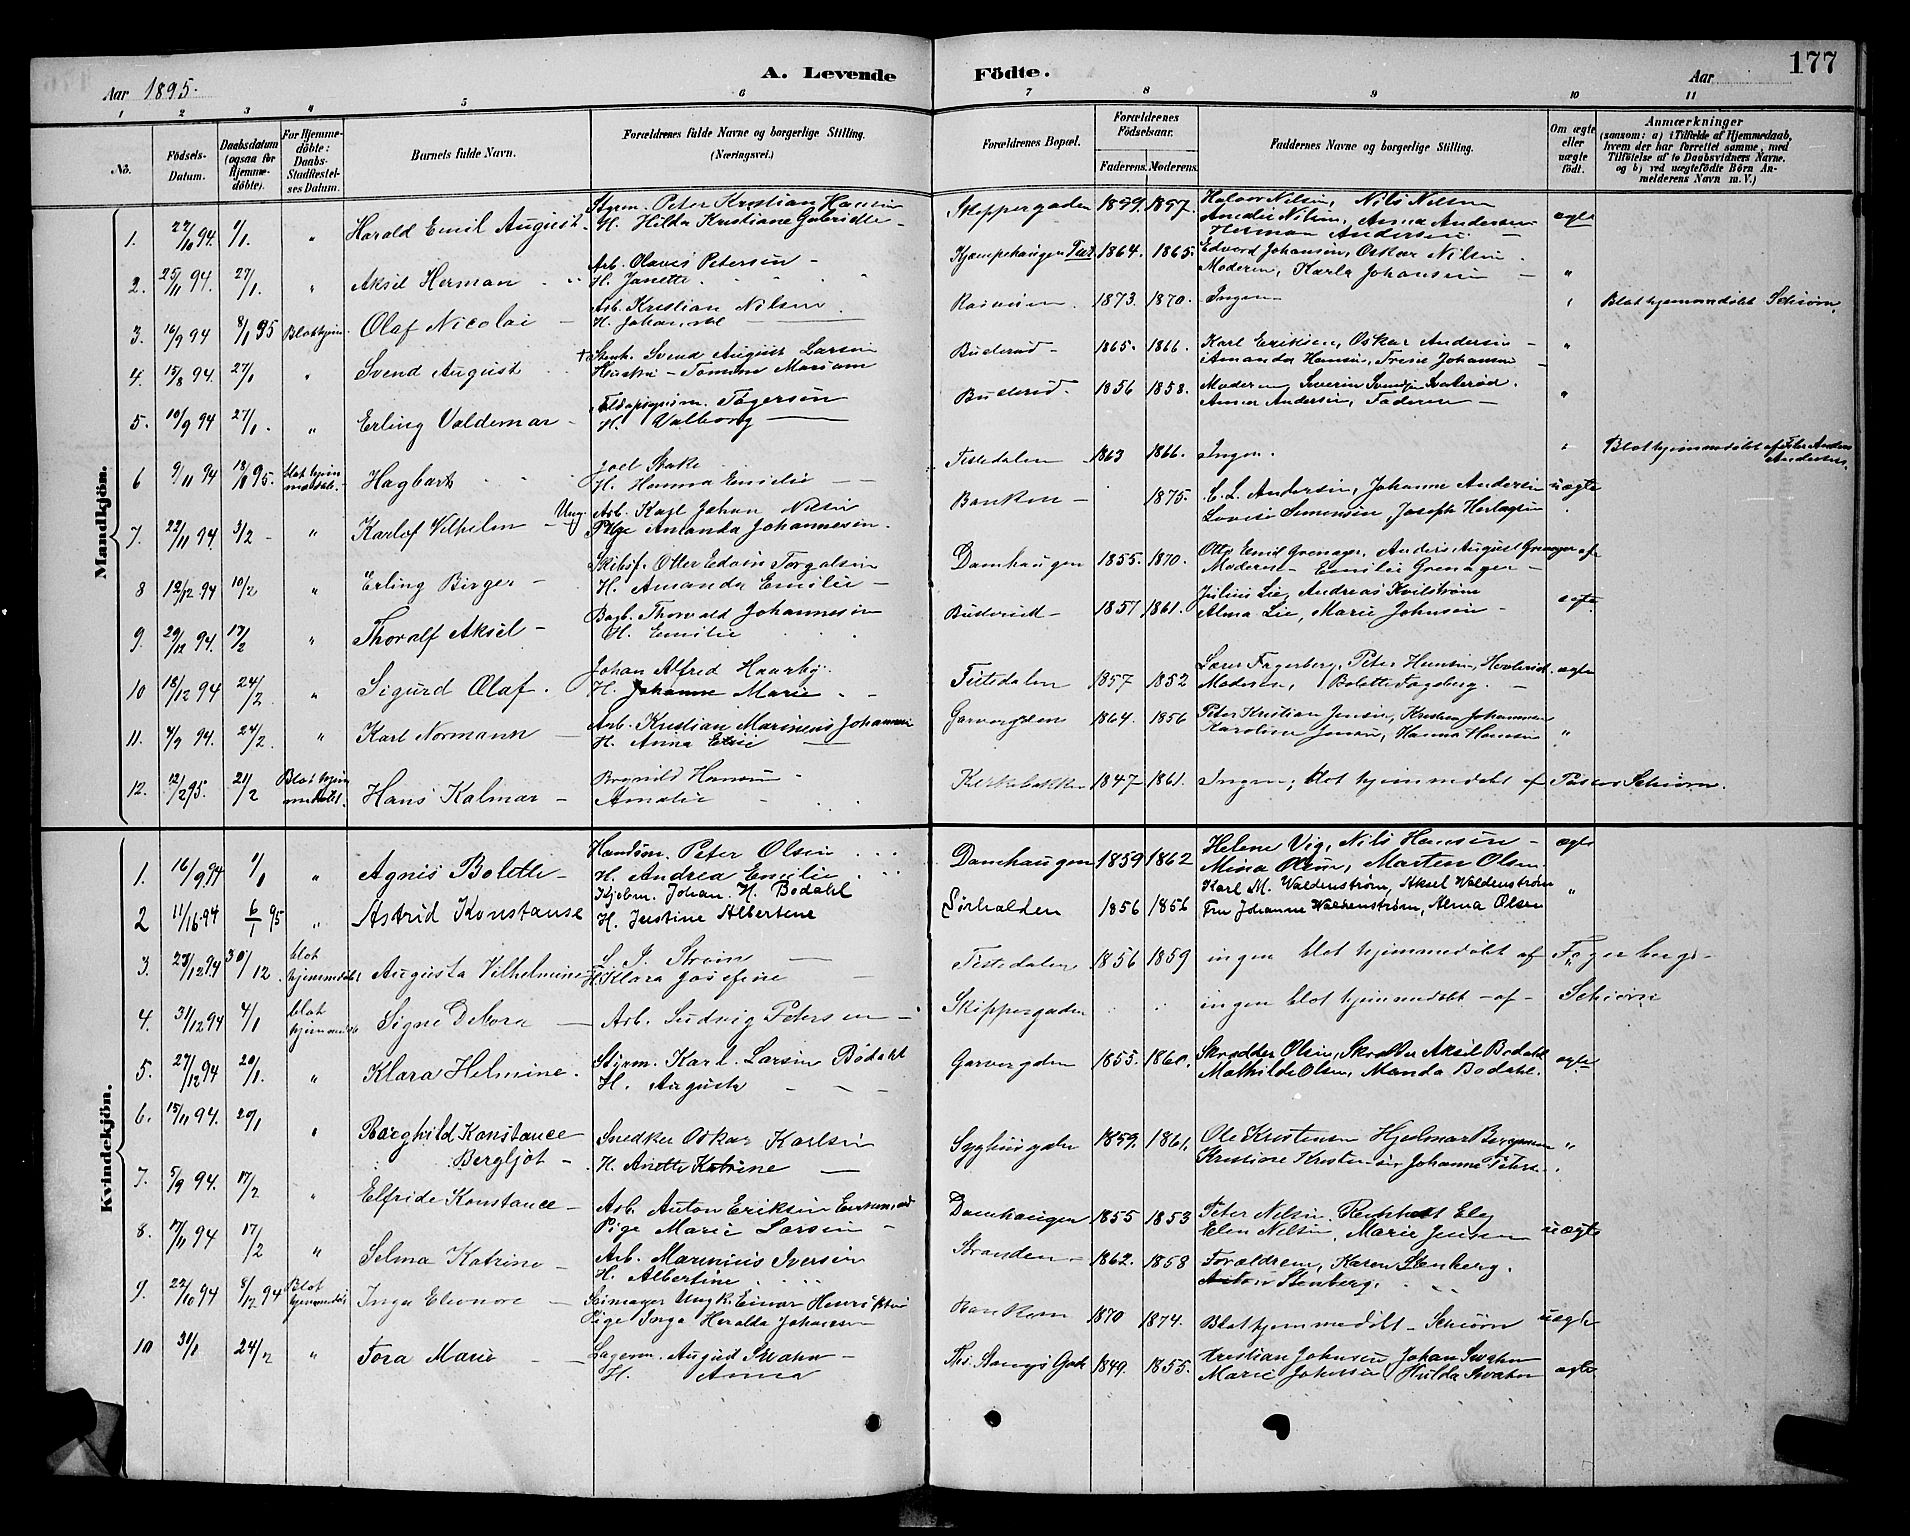 177
A. Levende Födte.
Aar 1895. Aar
1 2 3 4 5 6 7 8 9 10 11
No. Födsels-Datum. Daabsdatum (ogsaa for Hjemme-döbte). For Hjemme-döbte: Daabs-Stadfæstel-ses Datum. Barnets fulde Navn. Forældrenes fulde Navne og borgerlige Stilling. (Næringsvei.) Forældrenes Bopæl. Forældrenes Födselsaar. Faderens. Moderens. Faddernes Navne og borgerlige Stilling. Om ægte eller uægte födt. Anmærkninger (saasom: a) i Tilfælde af Hjemmedaab, hvem der har forrettet samme, med Tilföielse af to Daabsvidners Navne. og b) ved uægtefödte Börn An-melderens Navn m. V.)
Mandkjön.
1. 94. 1/1. " Harald Emil August Styrm. Peter Kristian Hansen H. Hilda Kristiane Gabrielle Skippergaden Halvor Nilsen, Nils Nilsen Amalie Nilsen, Anna Andersen Herman Andersen ægte
2. 25/11 94. 27/1. " Aksel Herman Arb. Olavus Petersen H. Janette Kjæmpehaugen 1864. 1865. Edvard Johansen, Oskar Nilsen Moderen, Karla Johansen "
3. 16/9 94 8/1 95 Blot hjem Olaf Nicolai Arb. Kristian Nilsen H. 1873. 1870. Ingen Blot hjemmedöbt Schiörn.
4. 15/8 94. 27/1 " Svend August Svend August Larsen 1865. 1866. Karl Eriksen, Oskar Andersen Amanda Hansen, Johansen "
5. 10/9 94 27/1. " Erling Valdemar Tögersen H. Valborg Buderød 1856 1858. Moderen, Severin Anna Andersen, Faderen "
6 9/11 94 18/1 95. blot hjem medöbt. Hagbart Joel Stake H. Hanna Emilie Tistedalen 1863 1866. Ingen. Blot hjemmedöbt af Peter Anders Andersen.
7. 22/11 94. 3/2 " Karlof Vilhelm Ung. Arb. Karl Johan Nilsen Pige Amanda Johannesen. Banken 1875. C. L. Andersen, Johanne Andersen Lovise Simensen, Joseph uægte
8 12/12 94 10/2 " Erling Birger Skibsf. Otter Edvin Torgalsen H. Amanda Emilie Damhaugen 1855. 1870. Otto Emil Grenager, Anders August Grenager Moderen Emilie Grenager
9. 29/12 94. 17/2 " Thoralf Aksel Bagb. Thorvald Johannesen H. Emilie 1857 1861. Julius Lie, Andreas Kvilstrøm Alma Lie, Marie Johnsen ægte
10 18/12 94 24/2 " Sigurd Olaf. Johan Alfred Haarby. H. Johanne Marie Tistedalen 1857 1852 Lærer Fagerberg, Peter Hansen, Moderen, Bolette Fagerberg. ægte
11. 7/9 94. 24/2. " Karl Normann Arb. Kristian Marinius Johannsen H. Anna Elise Garvergaden 1864. 1856 Peter Kristian Jensen, Kristian Johannsen Karoline Jensen, Hanna Hansen "
12. 12/2 95. 21/2 Blot hjem medöbt. Hans Kalmar Hansen Amalie Kirkebakken 1847 1861. Ingen; blot hjemmedöbt af Pastor Schiörn.
Kvindekjön.
1. 16/9 94 1/1 " Agnis Bolette Handsm. Peter Olsen H. Andrea Emilie Damhaugen 1859 1862 Helene Vig, Nils Hansen Mina Olsen, Marten Olsen. ægte
2 11/16 94 6/1 95 " Astrid Konstanse Kjøbm. Johan H. Bødahl H. Justine Albertine Sørhalden 1856 1856 Karl M. Waldenstrøm, Aksel Waldenstrøm Fru Johanne Waldenstrøm, Alma Olsen "
3. 23/12 94 30/12 blot hjemmedöbt Augusta Vilhelmine S. J. Strøm H. Klara Josefine Tistedalen 1856 1859 ingen blot hjemmedöbt af Fagerberg
4. 31/12 94 4/1 blot hjemmedöbt Signe Debora Arb. Ludvig Petersen Skippergaden ingen blot hjemmedöbt af Schiörn
5. 27/12 94 20/1. " Klara Helmine. Styrm. Karl Larsen Bødahl H. Augusta Garvergaden 1855. 1860. Skrædder Olsen, Skrædder Aksel Bødahl Mathilde Olsen, Manda Bødahl. ægte
6. 15/11 94. 20/1 " Borghild Konstance Bergljot Snedker Oskar Karlsen H. Anette Katrine Syghusgaden 1859. 1861. Ole Kristensen Hjalmar Bergman Kristine Kristensen Johanne Peters "
7. 5/9 94. 17/2 " Elfride Konstance Arb. Anton Eriksen Pige Marie Larsen Damhaugen 1855 1853 Peter Nelsen. Elen Nelsen, Marie Jensen uægte
8. 17/11 94 17/2 " Selma Katrine Arb. Marinius Iversen H. Albertine Stranden 1862. 1858 Forældrene, Karen Stenberg. Anton Stenberg.
9. 22/10 94 8/12 94 Blot hjemmedöbt Inga Eleonore Ungk. Einar Henriksen Pige Inga Heralda Johansen Banken 1870 1874. Blot hjemmedöbt Schiörn uægte
10 31/1 24/2 " Tora Marie Lagerm. August Svahn H. Anna Ths. Stangs Gade 1849. 1855. Kristian Johnsen, Johan Svahn Marie Johnsen, Hulda Svahn ægte